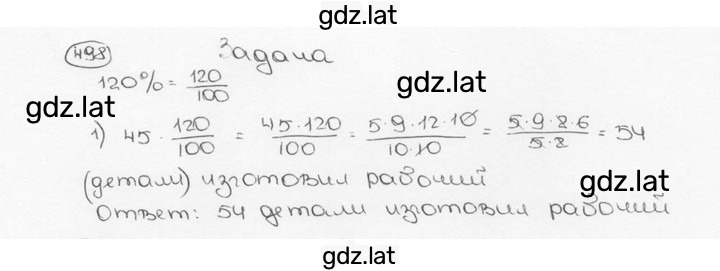 gdz.lat
498 Задача
120% = 120/100
gdz.lat
1) 45 · 120/100 = 45·120/100 = 5·9·12·10/10·10 = 5·9·2·6/5·2 = 54
(детали) изготовил рабочий
gdz.lat
Ответ: 54 детали изготовил рабочий
gdz.lat